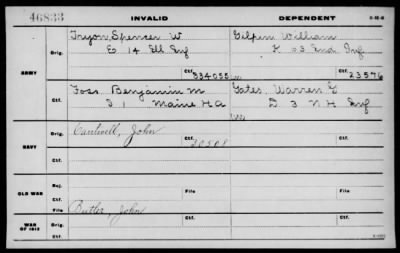 46833 INVALID DEPENDENT
Tryon, Spencer W Gilpin William
Orig. E 14 Ill Inf K 53 Ind Inf
ARMY Ctf. 334055 Ctf. 23576
Foss Benjamin M Gates, Warren G
Ctf. I 1 Maine H A D 3 N H Inf
Orig. Cantwell, John
NAVY Ctf. 20508 Ctf.
Ctf.
OLD WAR Rej. File File
Ctf.
File Butler, John
WAR OF 1812 Ctf. Ctf.